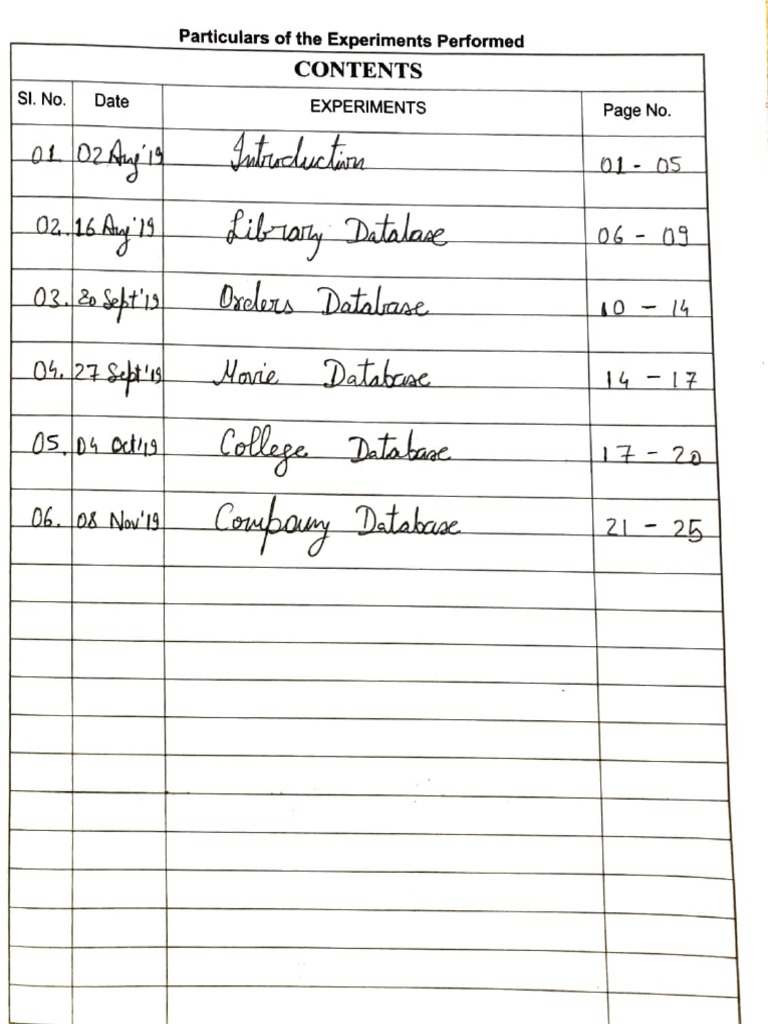 Particulars of the Experiments Performed
CONTENTS
Sl. No. Date EXPERIMENTS Page No.
01. 02 Aug'19 Introduction 01 - 05
02. 16 Aug'19 Library Database 06 - 09
03. 20 Sept'19 Orders Database 10 - 14
04. 27 Sept'19 Movie Database 14 - 17
05. 04 Oct'19 College Database 17 - 20
06. 08 Nov'19 Company Database 21 - 25